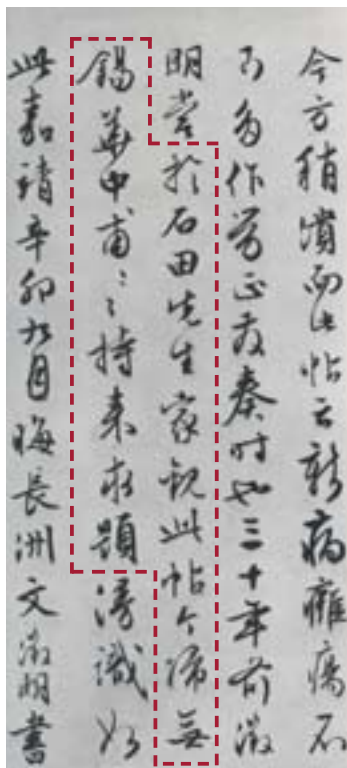 今方稍潰而此帖云新病癰瘍不
可多作勞正在奏時也三十年前徵
明嘗於石田先生家觀此帖今歸無
錫華中甫中甫持來求題漫識如
此嘉靖辛卯九月晦長洲文徵明書